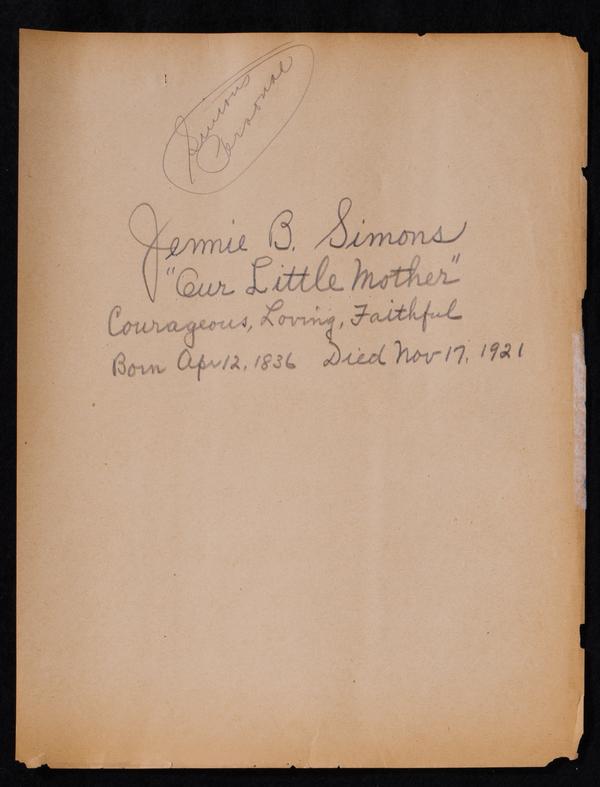 Simons
Personal
Jennie B. Simons
"Our Little Mother"
Courageous, Loving, Faithful
Born Apr 12, 1836 Died Nov 17, 1921